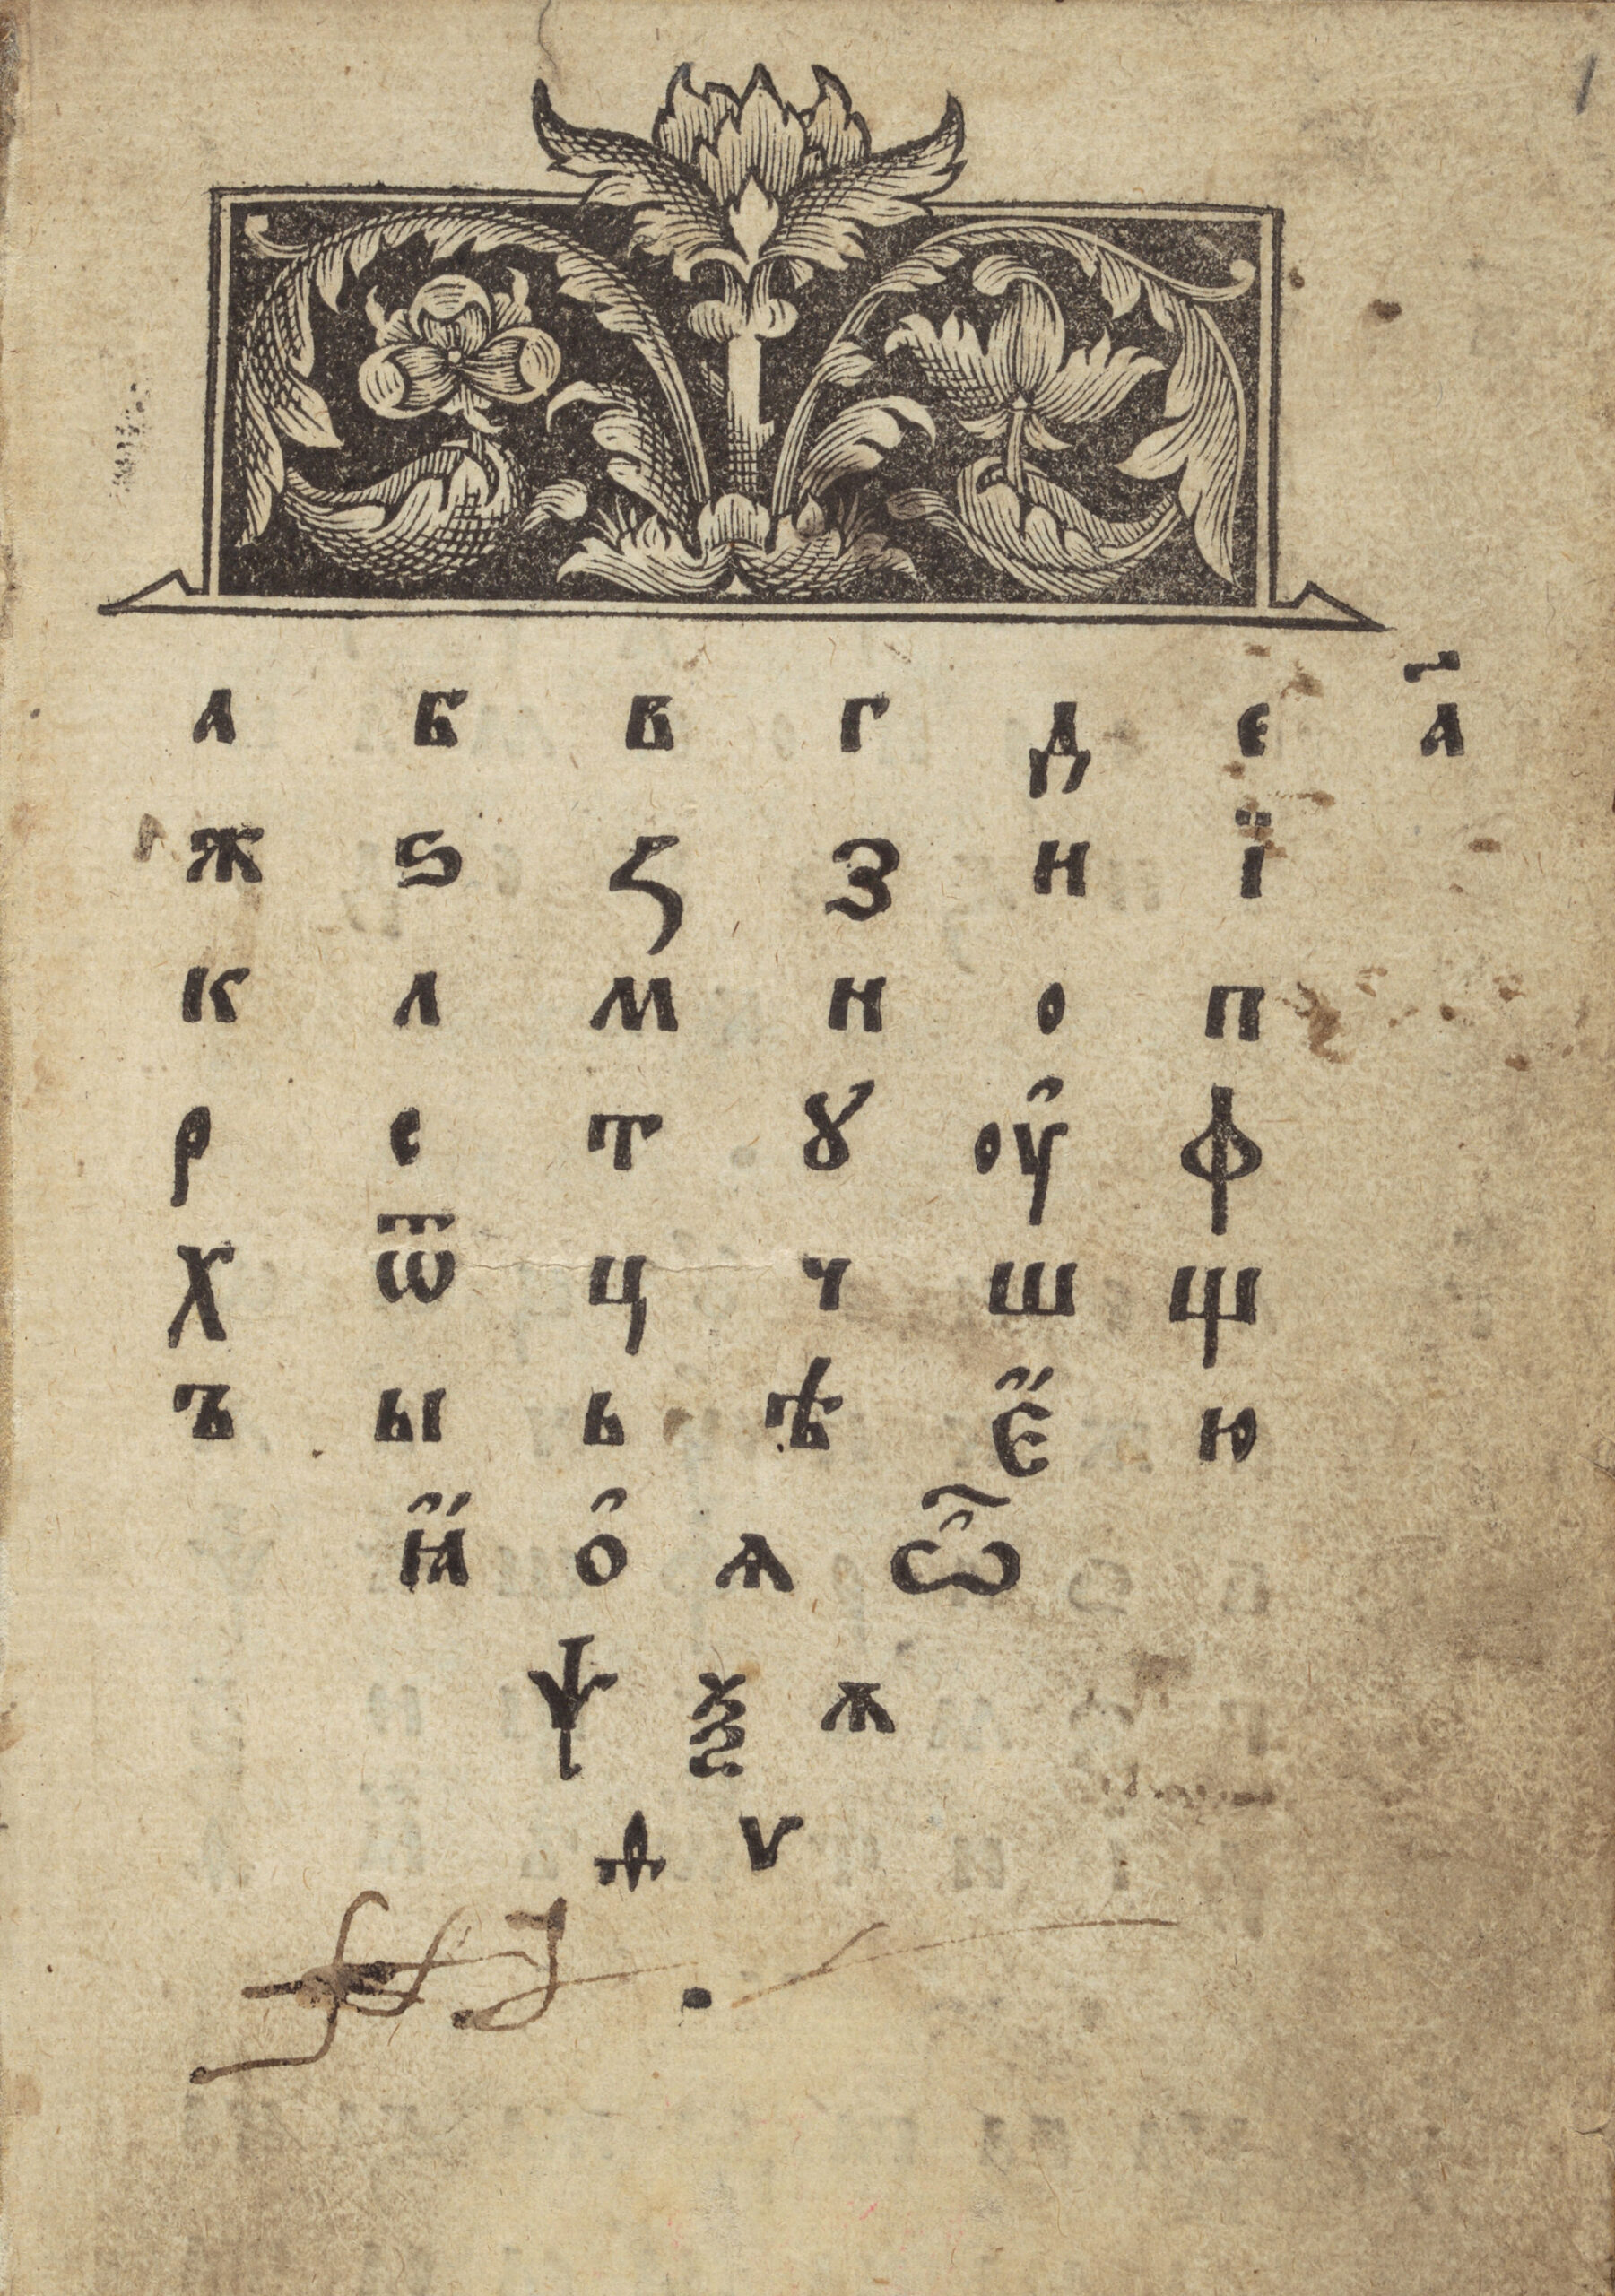 1
а б в г д є а҃
ж ѕ ꙁ з и ї
к л м н о п
р с т ꙋ оу҆ ф
х ѿ ц ч ш щ
ъ ы ь ѣ є҆̈ ю
ꙗ҆̈ о҆ ѧ ѽ
ѱ ѯ ѫ
ѳ ѵ